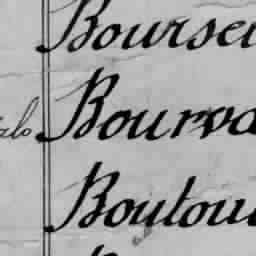 Boursei
alo Bourva
Boutou